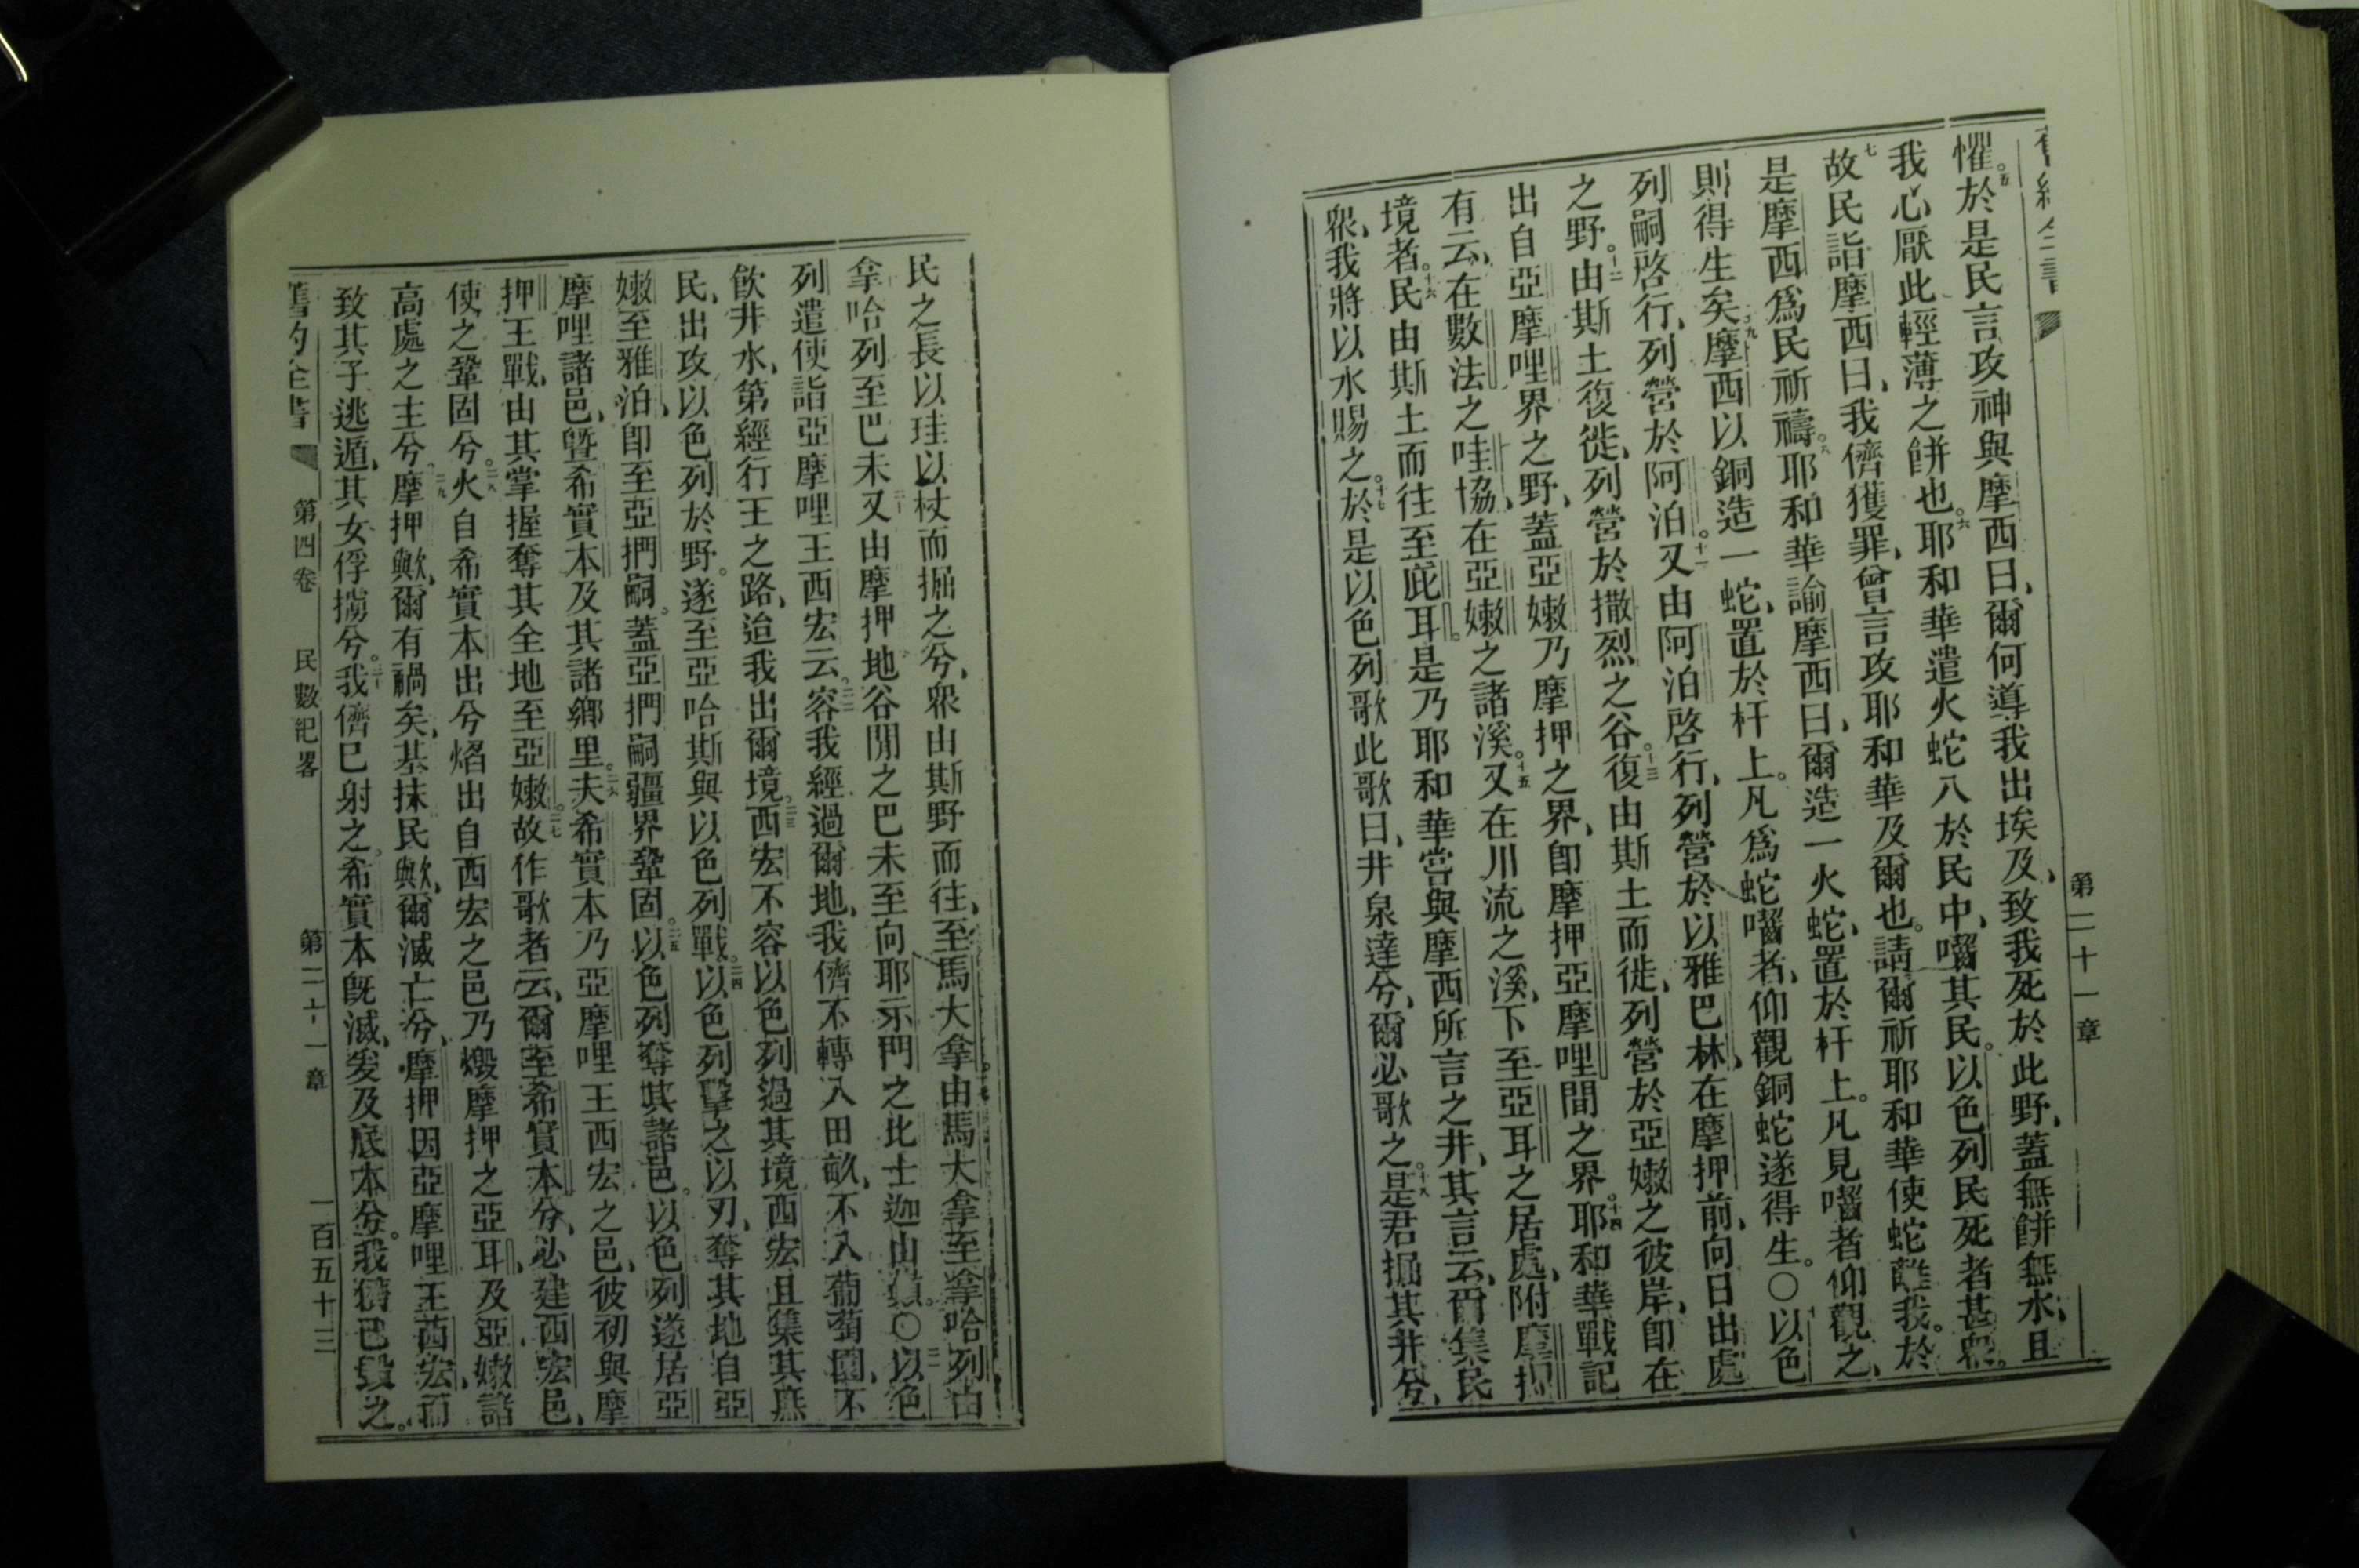 第二十一章
懼。五於是民言攻神與摩西曰、爾何導我出埃及、致我死於此野、蓋無餅無水、且
我心厭此輕薄之餅也。六耶和華遣火蛇入於民中、嚙其民。以色列民死者甚眾。
七故民詣摩西曰、我儕獲罪、曾言攻耶和華及爾也。請爾祈耶和華使蛇離我。於
是摩西爲民祈禱。八耶和華諭摩西曰、爾造一火蛇、置於杆上。凡見嚙者仰觀之、
則得生矣。九摩西以銅造一蛇、置於杆上。凡爲蛇嚙者、仰觀銅蛇遂得生。○十以色
列嗣啓行、列營於阿泊。十一又由阿泊啓行、列營於以雅巴林、在摩押前、向日出處
之野。十二由斯土復徙、列營於撒烈之谷。十三復由斯土而徙、列營於亞嫩之彼岸、卽在
出自亞摩哩界之野、蓋亞嫩乃摩押之界、卽摩押亞摩哩間之界。十四耶和華戰記
有云、在數法之哇協、在亞嫩之諸溪。十五又在川流之溪、下至亞耳之居處、附摩押
境者。十六民由斯土而往至庇耳。是乃耶和華嘗與摩西所言之井、其言云、爾集民
眾、我將以水賜之。十七於是以色列歌此歌曰、井泉達兮、爾必歌之。十八是君掘其井兮、
民之長以珪以杖而掘之兮、眾由斯野而往、至馬大拿。十九由馬大拿至拿哈列、由
拿哈列至巴末。二十又由摩押地谷閒之巴未至向耶示門之比士迦山嶺。○二一以色
列遣使詣亞摩哩王西宏云。二二容我經過爾地、我儕不轉入田畝、不入葡萄園、不
飮井水、第經行王之路、迨我出爾境。二三西宏不容以色列過其境、西宏且集其庶
民、出攻以色列於野。遂至亞哈斯與以色列戰。二四以色列擊之以刃、奪其地自亞
嫩至雅泊、卽至亞捫嗣。蓋亞捫嗣疆界鞏固。二五以色列奪其諸邑。以色列遂居亞
摩哩諸邑、曁希實本及其諸鄉里。二六夫希實本乃亞摩哩王西宏之邑、彼初與摩
押王戰、由其掌握奪其全地至亞嫩。二七故作歌者云、爾至希實本兮、必建西宏邑、
使之鞏固兮。二八火自希實本出兮焰出自西宏之邑乃燬摩押之亞耳、及亞嫩諸
高處之主兮。二九摩押歟、爾有禍矣、基抹民歟、爾滅亡兮、摩押因亞摩哩王西宏、而
致其子逃遁、其女俘擄兮。三十我儕已射之。希實本旣滅、爰及底本兮。我儕已毀之。
舊約全書 第四卷 民數紀畧 第二十一章 一百五十三